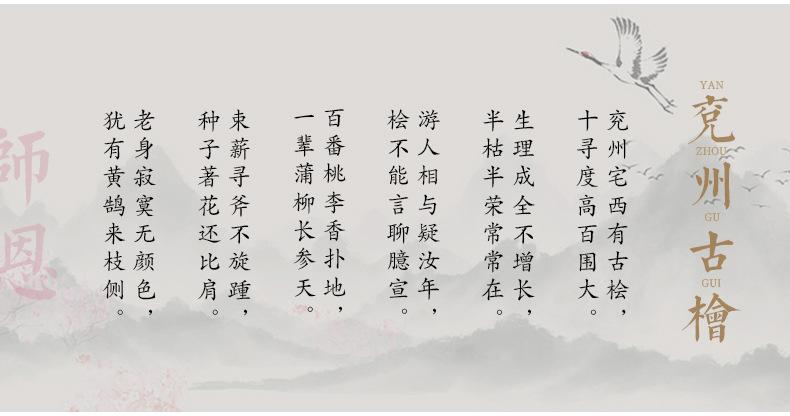 YAN
兖
ZHOU
州
GU
古
GUI
檜
兖州宅西有古桧，
十寻度高百围大。
生理成全不增长，
半枯半荣常常在。
游人相与疑汝年，
桧不能言聊臆宣。
百番桃李香扑地，
一辈蒲柳长参天。
束薪寻斧不旋踵，
种子著花还比肩。
老身寂寞无颜色，
犹有黄鹄来枝侧。
師恩